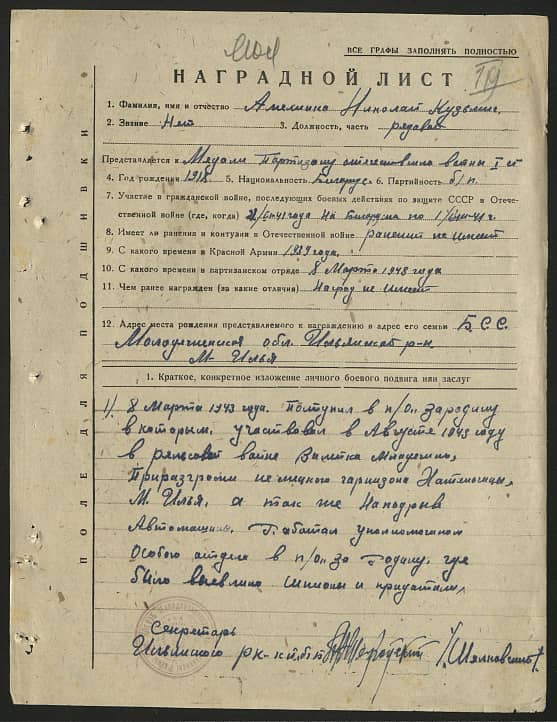 ВСЕ ГРАФЫ ЗАПОЛНЯТЬ ПОЛНОСТЬЮ
НАГРАДНОЙ ЛИСТ
1. Фамилия, имя и отчество Николай Кузьмич
2. Звание Нет 3. Должность, часть рядовой
Представляется к Медали Партизану отечественно войны I ст
4. Год рождения 1918. 5. Национальность Белорус. 6. Партийность б/п.
7. Участие в гражданской войне, последующих боевых действиях по защите СССР в Отече-
ственной войне (где, когда)
8. Имеет ли ранения и контузии в Отечественной войне ранений не имеет
9. С какого времени в Красной Армии 1939 года.
10. С какого времени в партизанском отряде 8 Марта 1943 года
11. Чем ранее награжден (за какие отличия) Наград не имеет
12. Адрес места рождения представляемого к награждению и адрес его семьи Б.С.С.
обл. Ильянский р-н
М. Илья
1. Краткое, конкретное изложение личного боевого подвига или заслуг
1/. 8 Марта 1943 года. Поступил в п/о за родину
в которым. участвовал в Августе 1943 году
в рельсовой войне
При разгроми немецкого гарнизона
М. Илья, а так же на подрыв
Автомашины. Работал уполномоченом
Особого отдела в п/о за Родину, где
было выявлино шпионы и
Секретарь
Ильянского рк-кп/б/б
ПОЛЕ ДЛЯ ПОДШИВКИ